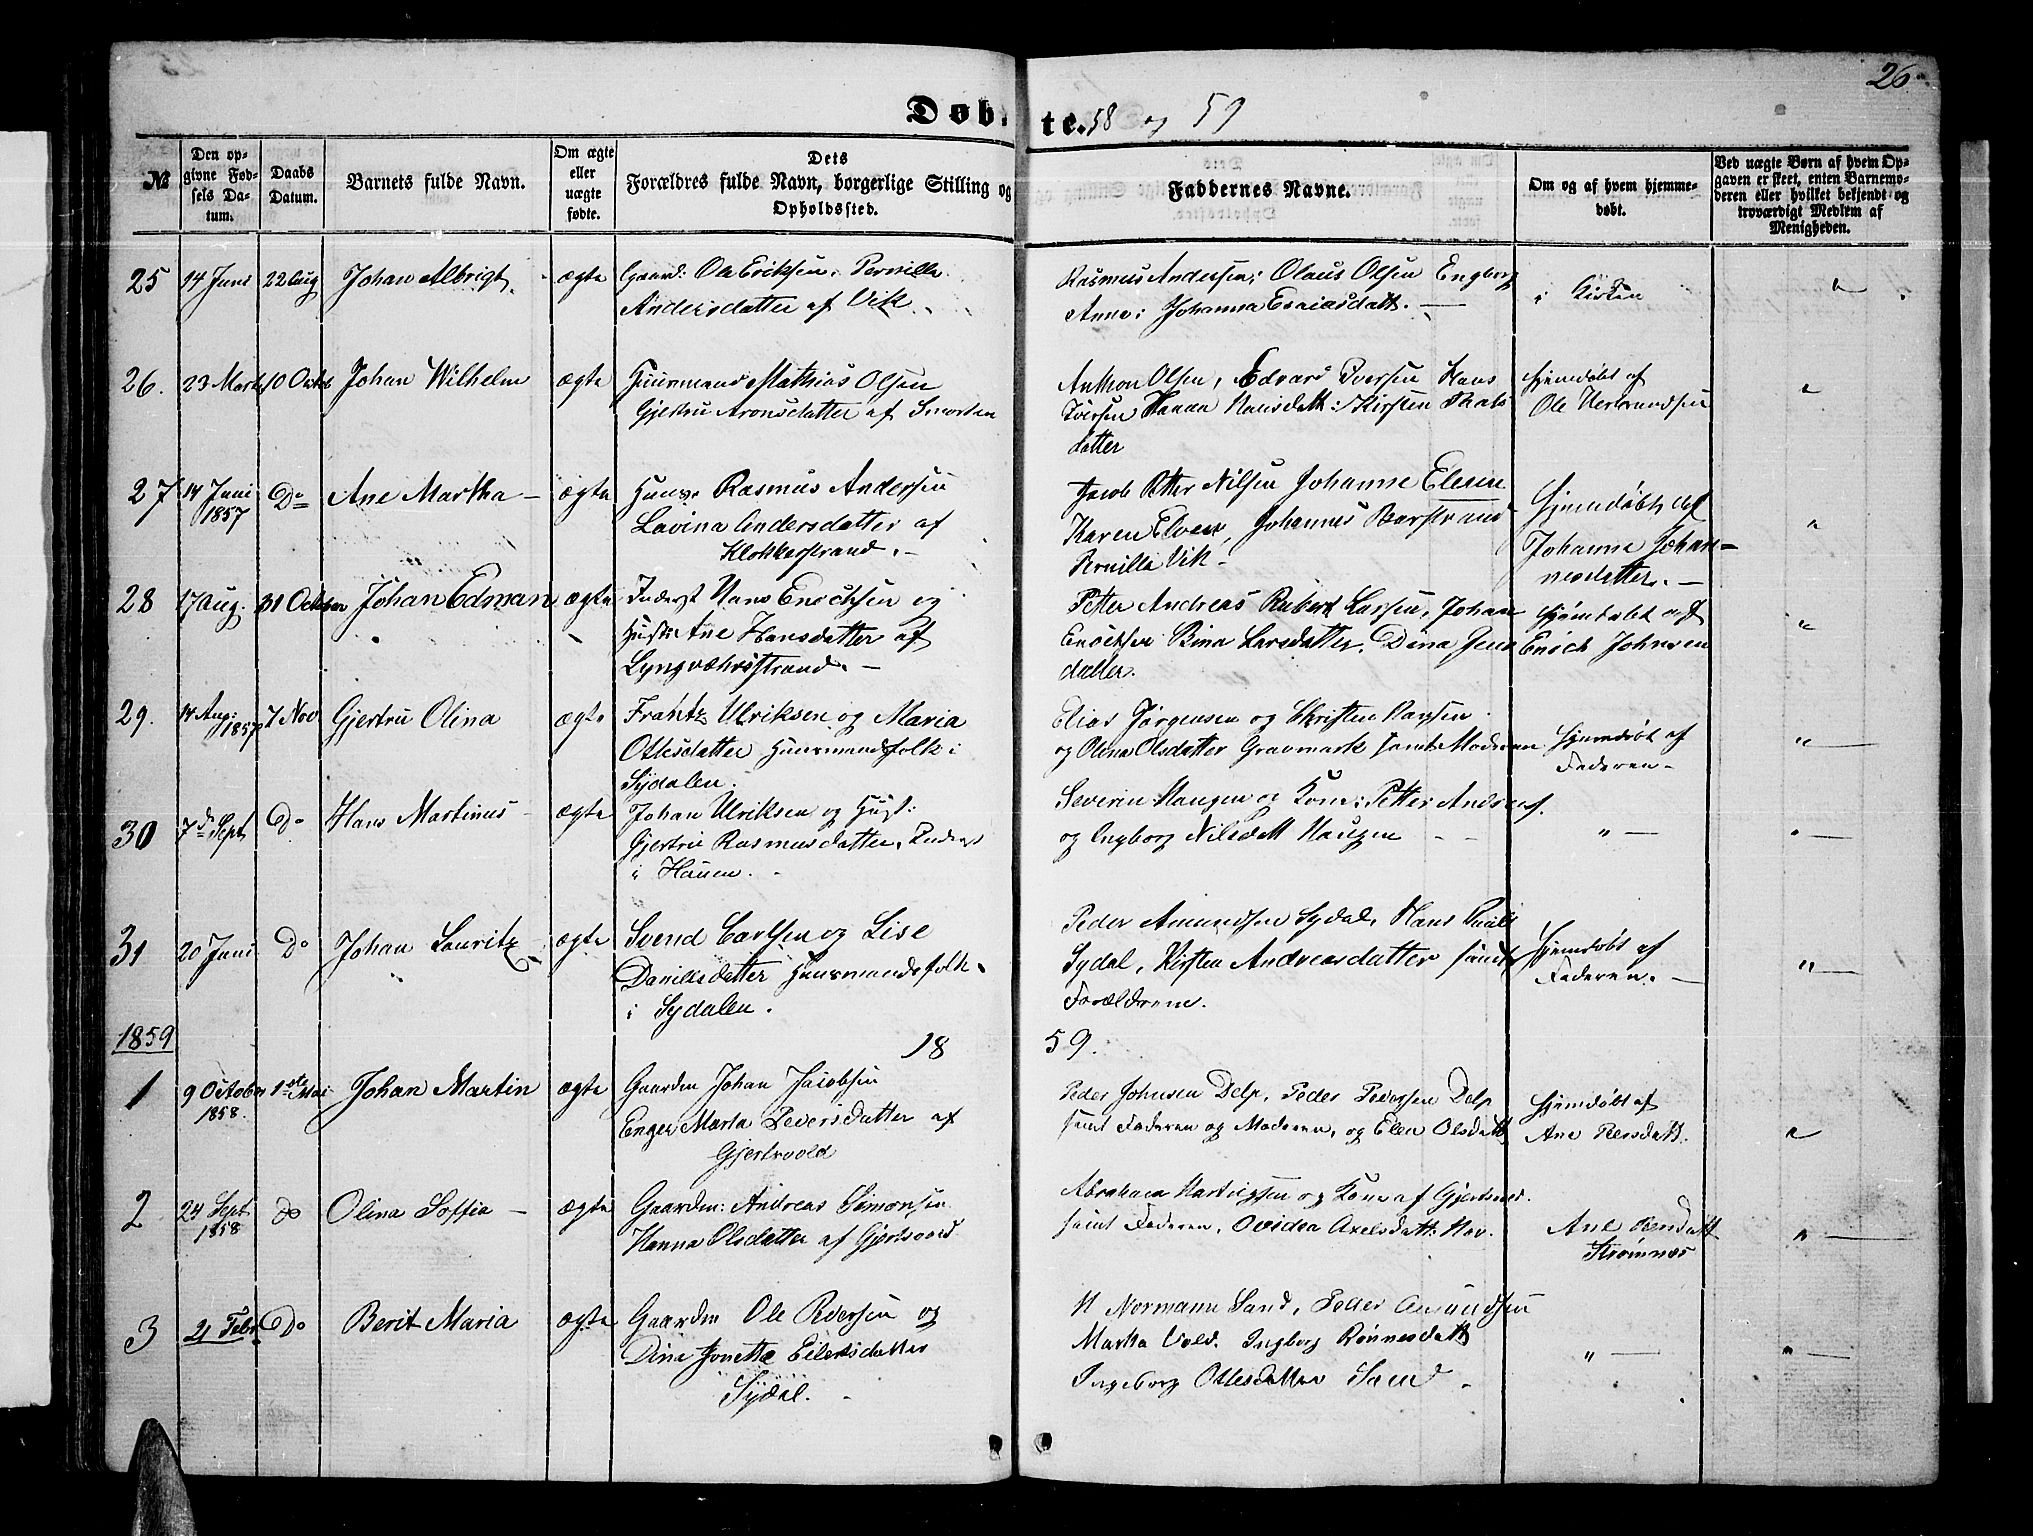 26
Døbte. 58 og 59
№
Den opgivne Fødsels Datum.
Daabs Datum.
Barnets fulde Navn.
Om ægte eller uægte fødte.
Dets Forældres fulde Navn, borgerlige Stilling og Opholdssted.
Faddernes Navne.
Om og af hvem hjemmedøbt.
Ved uægte Børn af hvem Opgaven er skeet, enten Barnemoderen eller hvilket bekjendt og troværdigt Medlem af Menigheden.
25 14 Juni 22 Aug Johan Albrigt ægte Gaard: Ole Eriksen, Pernilla
Andersdatter af Vik.
Rasmus Andersen, Olaus Olsen Engborg
Anne: Johanna Esaiasdatt. —
i Kirken "
26. 23 Marts 10 Octb Johan Wilhelm ægte Huusmand Mathias Olsen
Gjertru Aronsdatter af Smorten
Anthon Olsen, Edvard Iversen Hans
Iversen Hanna Hansdatt: Kirsten
datter
Hjemdøbt af
Ole
"
27 14 Juni
1857
Do Ane Martha — ægte Huusm Rasmus Andersen
Lavina Andersdatter af
Klokkerstrand. —
Jacob Petter Nilsen Johanne Elesen
Karen Elvesen, Johannes Barstrand
Pernilla Vik —
Hjemdøbt af
Johanna Johannesdatter. —
"
28 17 Aug. 31 October Johan Edman ægte Inderst Hans Enocksen og
Hust: Ane Hansdatter af
Lyngværhrstrand. —
Petter Andreas Rubert Larsen, Johan
Enocksen Bina Larsdatter, Dina Jens
datter.
Hjemdøbt af
Enoch Johnsen
"
29. 14 Aug:
1857
7 Nov Gjertru Olina ægte Frantz Ulriksen og Maria
Ottesdatter Huusmandsfolk i
Sydalen.
Elias Jørgensen og Christen Hansen
og Olena Olsdatter Gravmark samt Moderen
Hjemdøbt af
Faderen —
" —
30 7de Sept. Do Hans Martinus — ægte Johan Ulriksen og Hust:
Gjertru Rasmusdatter, Inderst
i Hauen.
Severin Haugen og Kone: Petter Andreas
og Ingborg Nilsdatt Haugen — —
" — " —
31 20 Juni Do Johan Lauritz ægte Svend Carlsen og Lise
Danielsdatter Huusmandsfolk
i Sydalen.
Peder Amundsen Sydal, Hans
Sydal, Kirsten Andreasdatter samt
Forældrene.
Hjemdøbt af
Faderen. —
" —
1859 18 59.
1 9 October
1858.
1ste Mai Johan Martin ægte Gaarden Johan Jacobsen
Enger Marta Peversdatter af
Gjertvold
Peder Johnsen Delp, Peder Pedersen Delp
samt Faderen og Moderen, og Elen Olsdatt
Hjemdøbt af
Ane Persdatt.
"
2 24 Sept.
1858
do Olina Soffia — ægte Gaarden: Andreas Simonsen
Hanna Olsdatter af Gjersvold
Abraham Hartvigsen og Kone af Gjertsvod.
samt Faderen, Ovidea Axelsdatt: Hov.
Ane
Strømnæs
" —
3 21 Febr. Do Berit Maria ægte Gaarden Ole Iversen og
Dina Jonetta Eilertsdatter
Sydal. —
N Normann Sand, Peder Amundsen
Martha Vold. Ingborg Rønnesdatt
Ingeborg Ottesdatter Sand —
" — " —